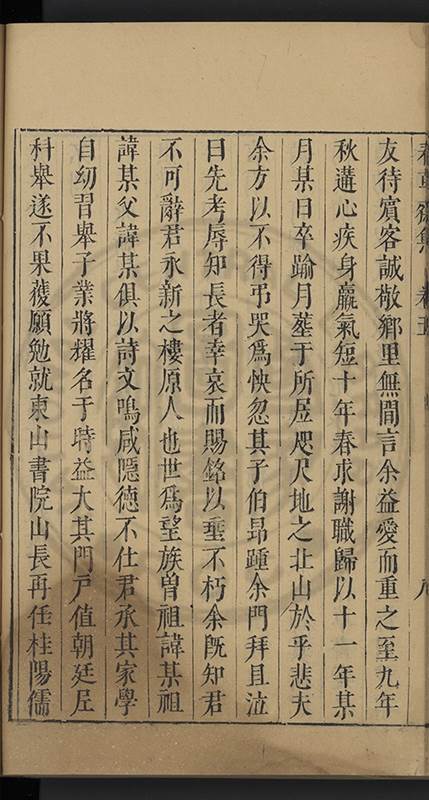 友待賓客誠敬鄉里無間言余益愛而重之至九年
秋遘心疾身羸氣短十年春求謝職歸以十一年某
月某日卒踰月塟于所居咫尺地之北山於乎悲夫
余方以不得弔哭爲怏忽其子伯昂踵余門拜且泣
曰先考辱知長者幸哀而賜銘以埀不朽余旣知君
不可辭君永新之樓原人也世爲望族曽祖諱某祖
諱某父諱某俱以詩文鳴咸隱德不仕君承其家學
自幼習舉子業將耀名于時益大其門戸值朝廷𡱈
科舉遂不果獲願勉就東山書院山長再任桂陽儒